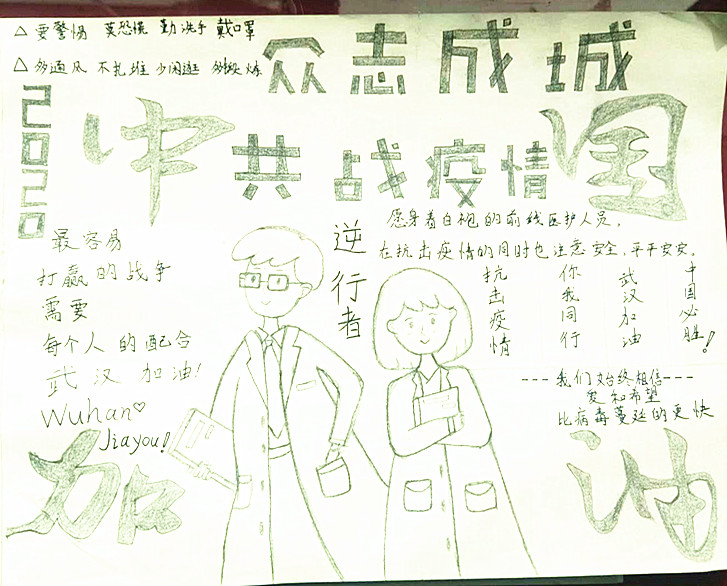 △ 要警惕 莫恐慌 勤洗手 戴口罩
△ 多通风 不扎堆 少闲逛 多锻炼
众志成城
2020
中国
共战疫情
愿身着白袍的前线医护人员，
在抗击疫情的同时也注意安全，平平安安。
逆行者
最容易
打赢的战争
需要
每个人的配合
武汉加油!
Wuhan♡
Jiayou!
抗击疫情
你我同行
武汉加油
中国必胜!
---我们始终相信---
爱和希望
比病毒蔓延的更快
加油